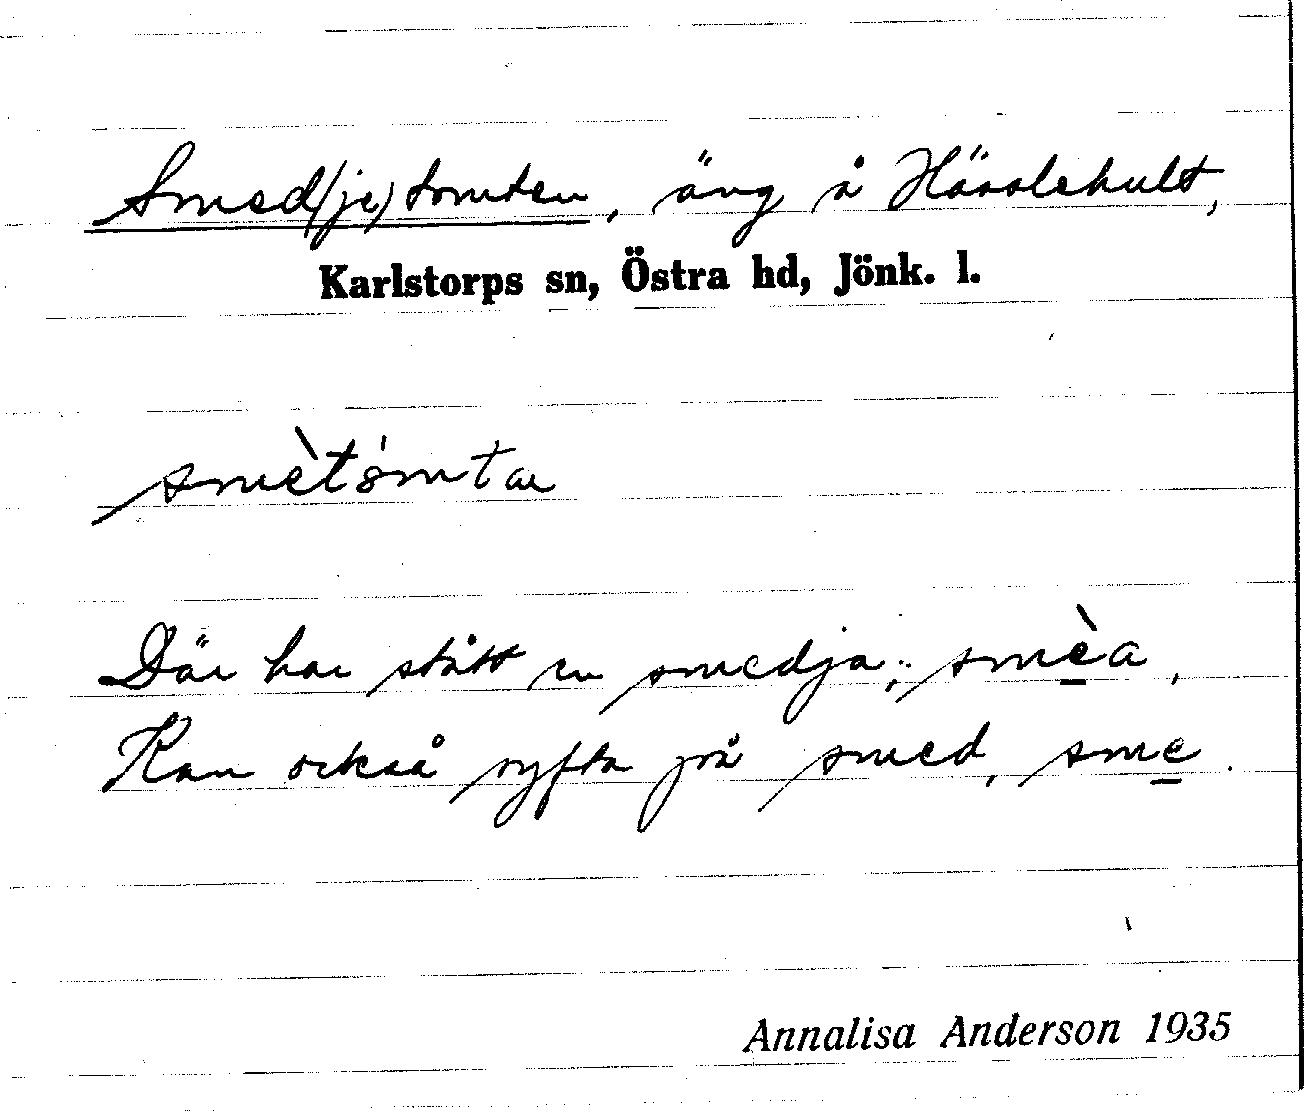 Smed(je)tomten, äng å Häralehult,
Karlstorps sn, Östra hd, Jönk. l.
smètómtar
Där har stått en smedja, smèa,
Kan också syfta på smed, sme.
Annalisa Anderson 1935